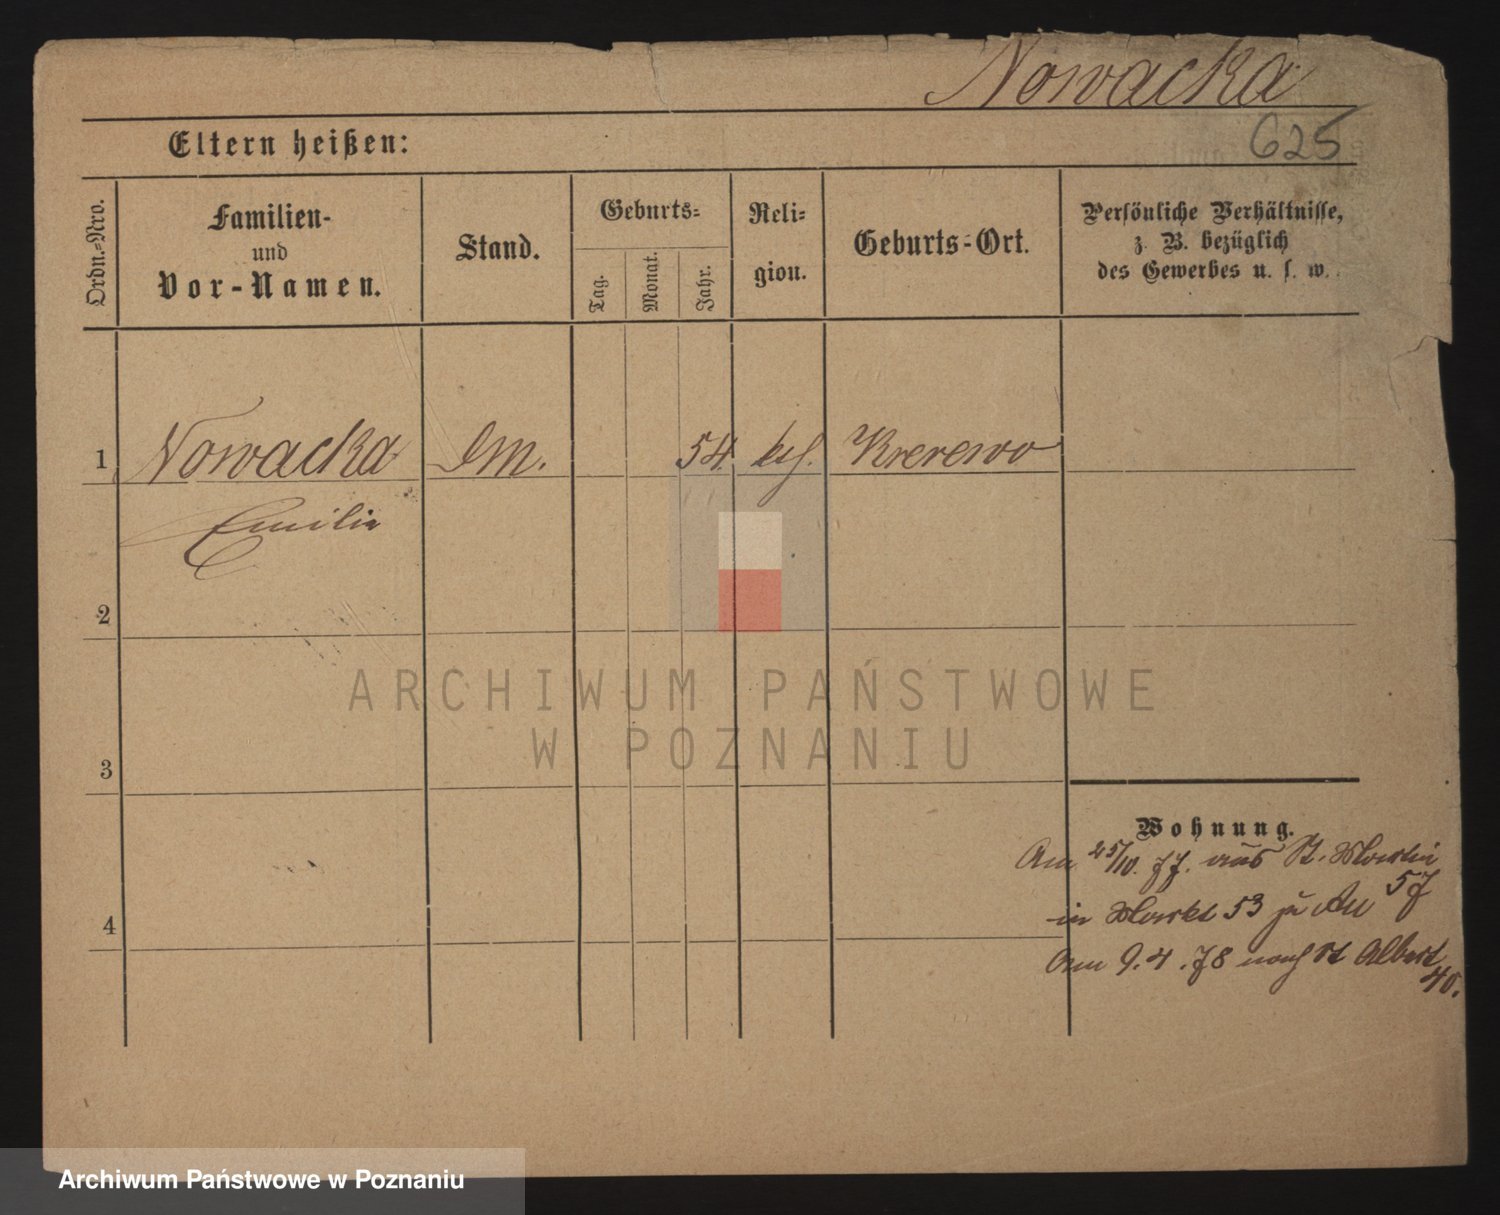 Nowacka
625
Eltern heißen:
Ordn.-Nro.
Familien-
und
Vor-Namen.
Stand.
Geburts-
Tag.
Monat.
Jahr.
Reli-
gion.
Geburts-Ort.
Persönliche Verhältnisse,
z. B. bezüglich
des Gewerbes u. s. w.
1 Nowacka 54. kth. Krerewo
Emilie
2
ARCHIWUM PAŃSTWOWE
W POZNANIU
3
Wohnung.
Am 25/10. 77. aus St. Martin
in Markt 53 zu 57
4
Am 9.4.78 nach St Albert
40.
Archiwum Państwowe w Poznaniu